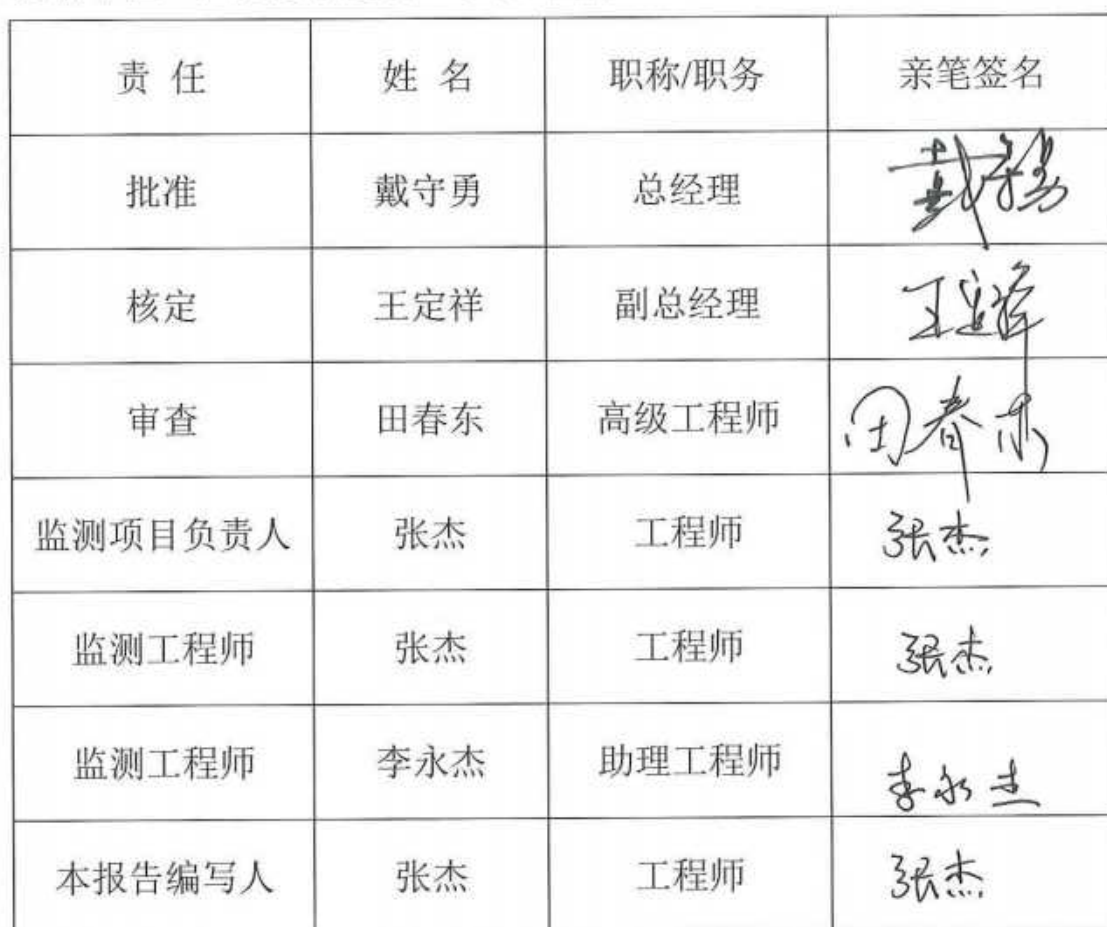 责 任 姓 名 职称/职务 亲笔签名
批准 戴守勇 总经理 戴守勇
核定 王定祥 副总经理 王定祥
审查 田春东 高级工程师 田春东
监测项目负责人 张杰 工程师 张杰
监测工程师 张杰 工程师 张杰
监测工程师 李永杰 助理工程师 李永杰
本报告编写人 张杰 工程师 张杰